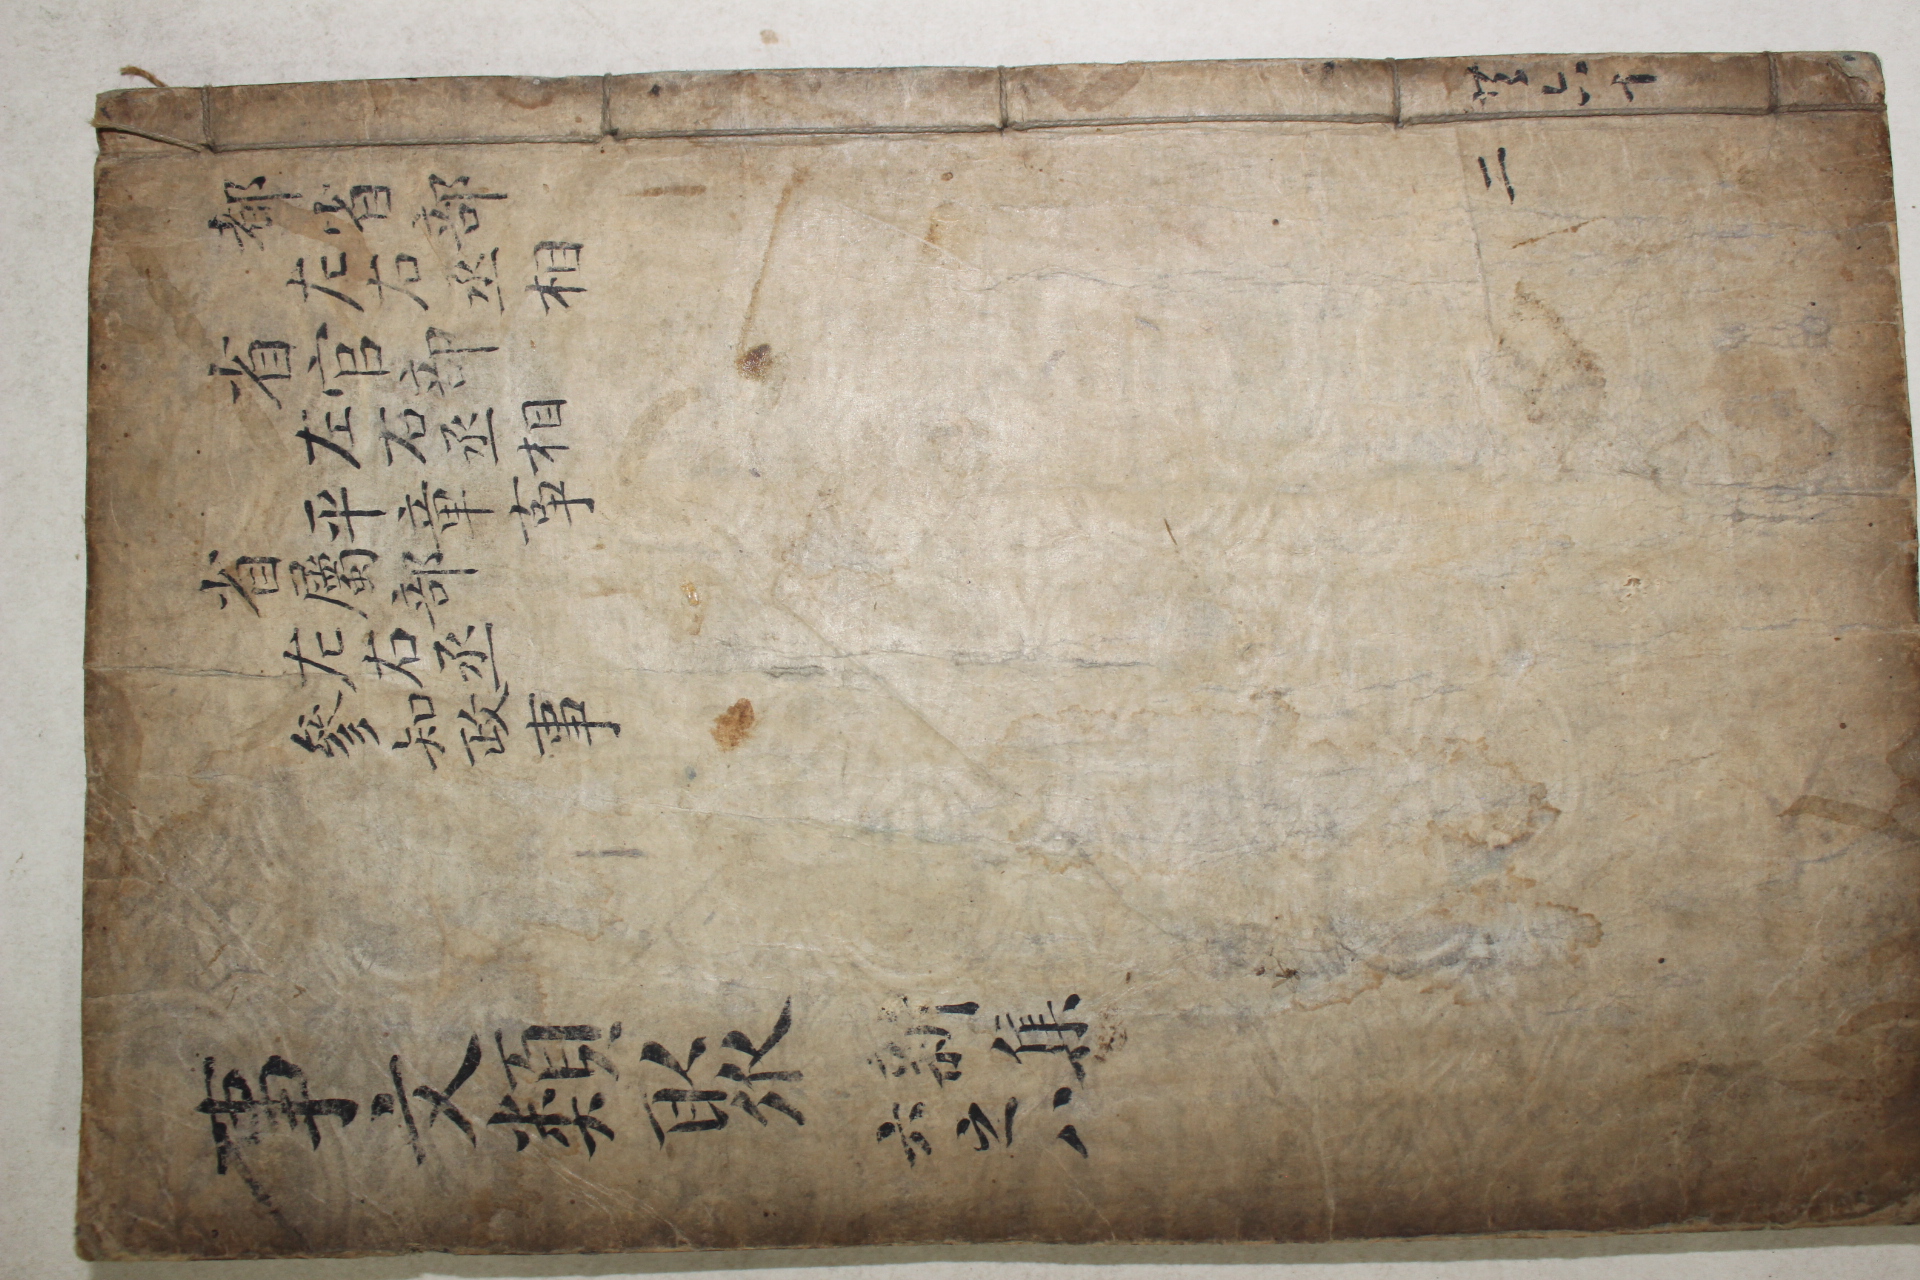 都省部
左右丞相
省官部
左右丞相
平章事
省屬部
左右丞
參知政事
事文類聚
新集
六之八
二
共六十